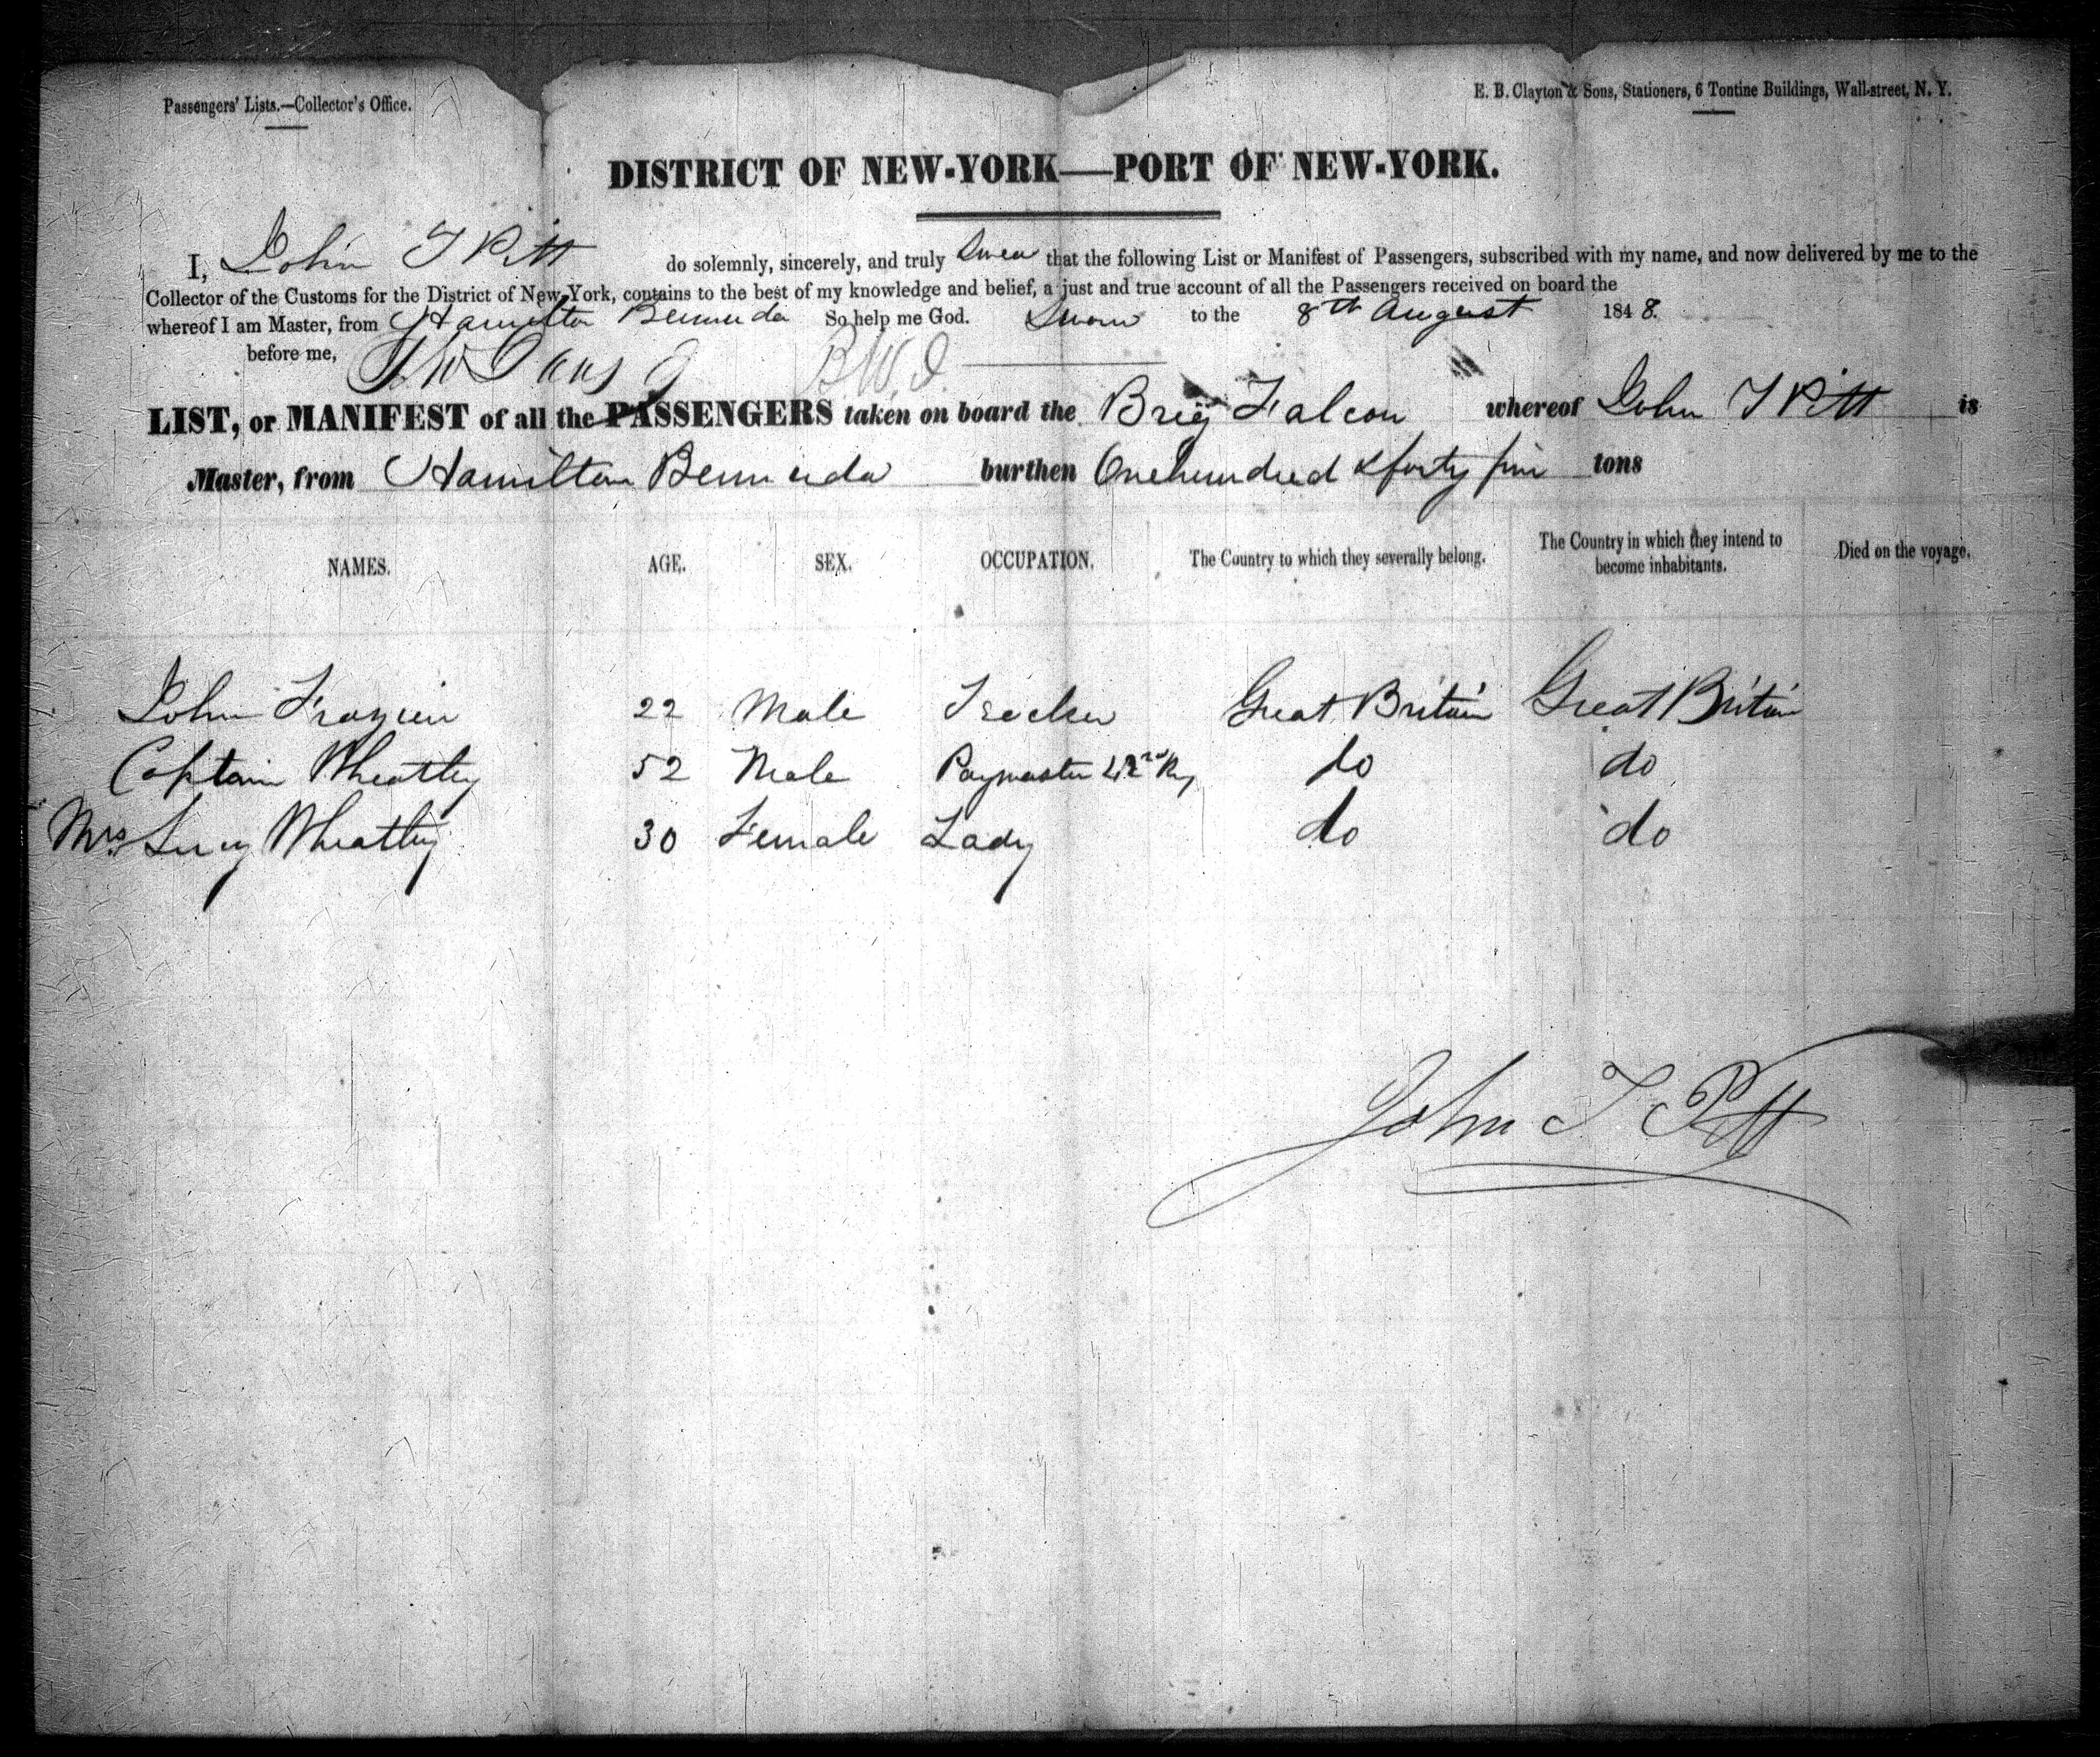 Passengers' Lists.—Collector's Office.
E. B. Clayton & Sons, Stationers, 6 Tontine Buildings, Wall-street, N. Y.
DISTRICT OF NEW-YORK—PORT OF NEW-YORK.
I, John T Pitt do solemnly, sincerely, and truly Swear that the following List or Manifest of Passengers, subscribed with my name, and now delivered by me to the
Collector of the Customs for the District of New-York, contains to the best of my knowledge and belief, a just and true account of all the Passengers received on board the
whereof I am Master, from Hamilton Bermuda So help me God. Sworn to the 8th August 1848.
before me, B.W.I.
LIST, or MANIFEST of all the PASSENGERS taken on board the Brig Falcon whereof John T Pitt is
Master, from Hamilton Bermuda burthen Onehundred & forty five tons
NAMES. AGE. SEX. OCCUPATION. The Country to which they severally belong. The Country in which they intend to become inhabitants. Died on the voyage.
John Frazier 22 Male Great Britain Great Britain
Captain Wheatley 52 Male Paymaster 42nd Rg do do
Mrs. Lucy Wheatley 30 Female Lady do do
John T Pitt